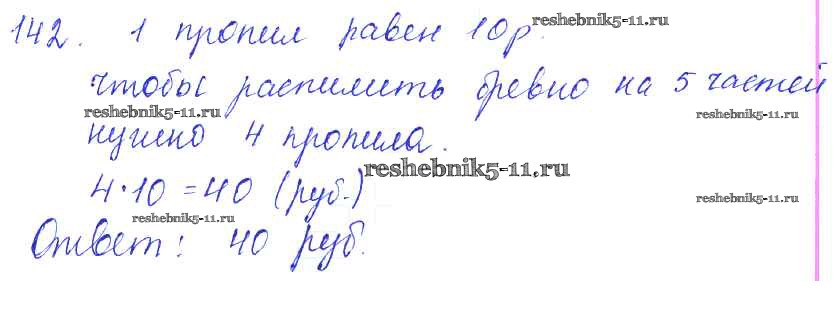 142. 1 пропил равен 10р. reshebnik5-11.ru
чтобы распилить бревно на 5 частей
reshebnik5-11.ru reshebnik5-11.ru
нужно 4 пропила.
reshebnik5-11.ru
4·10=40 (руб.) reshebnik5-11.ru
reshebnik5-11.ru
Ответ: 40 руб.